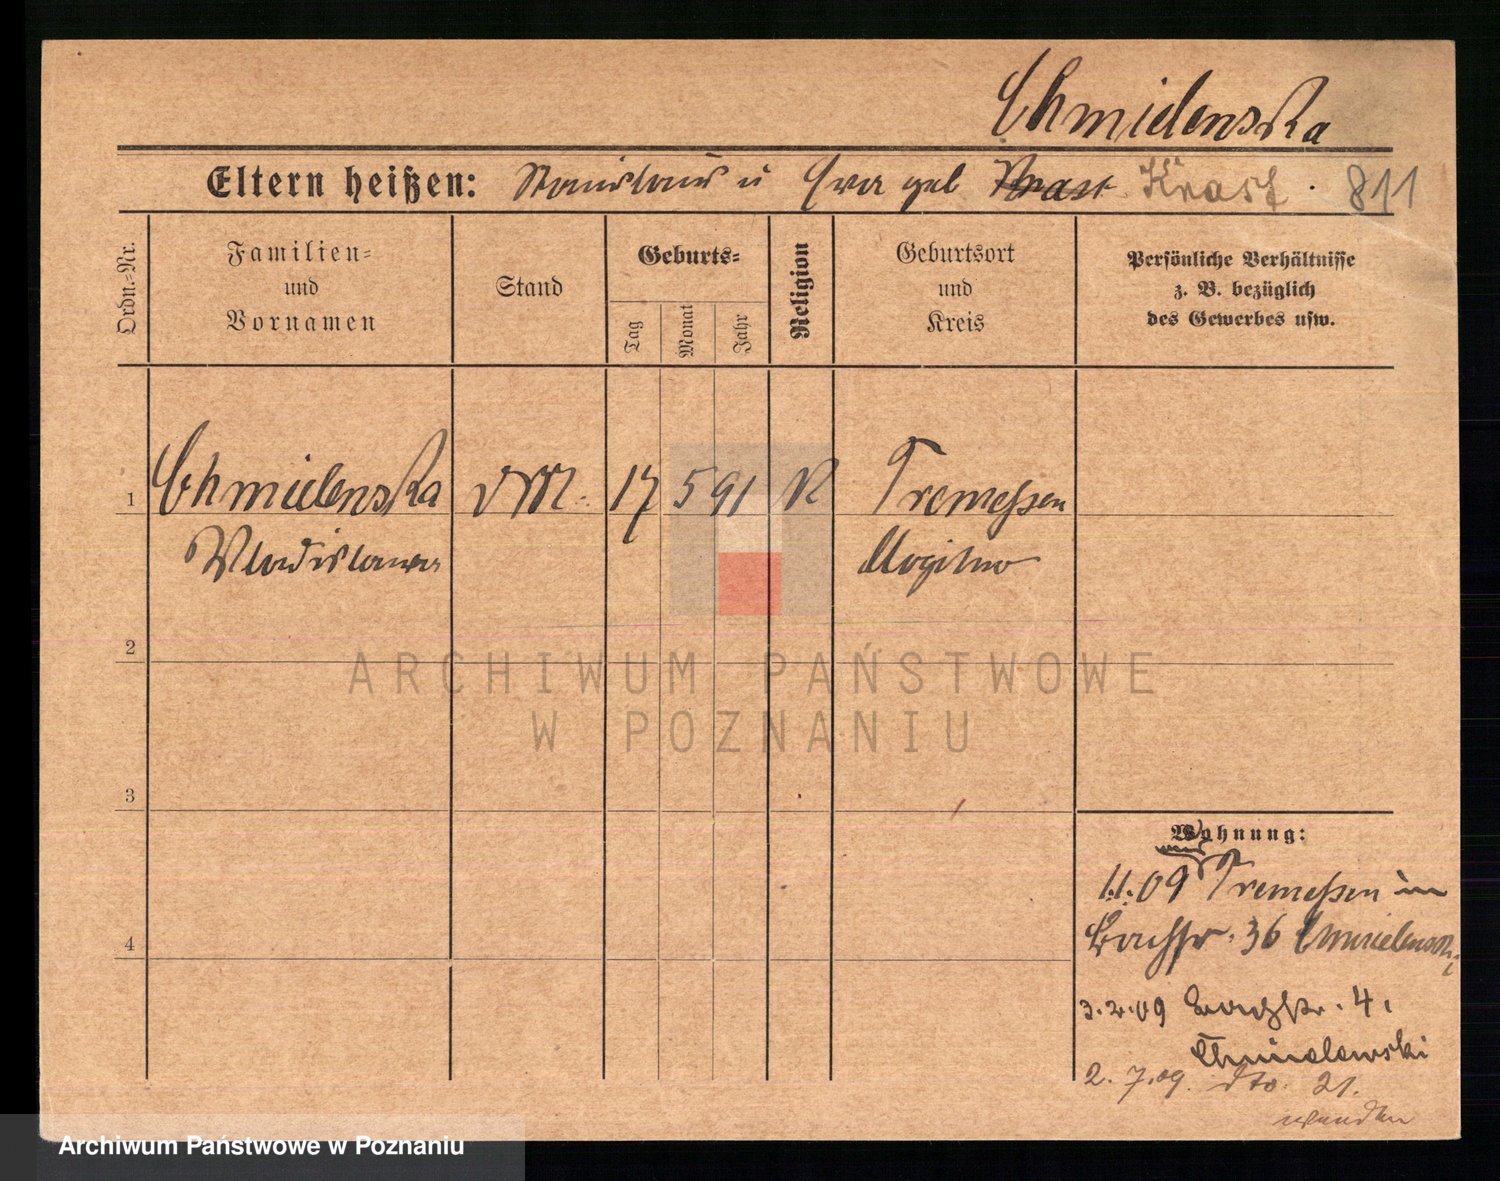 Chmielenska
Eltern heißen: Stanislaus u Eva geb Krast Krast. 811
Ordn.-Nr.
Familien-
und
Vornamen
Stand
Geburts-
Tag
Monat
Jahr
Religion
Geburtsort
und
Kreis
Persönliche Verhältnisse
z. B. bezüglich
des Gewerbes usw.
1 Chmielenska DM. 17 5 91 R Tremessen
Wladislawa Mogilno
2
ARCHIWUM PAŃSTWOWE
W POZNANIU
3
Wohnung:
1.1.09 Tremessen in
4
Bachstr. 36 Chmielenski
3.2.09 Bachstr. 4.
Chmielewski
2.7.09. dto. 21.
Archiwum Państwowe w Poznaniu